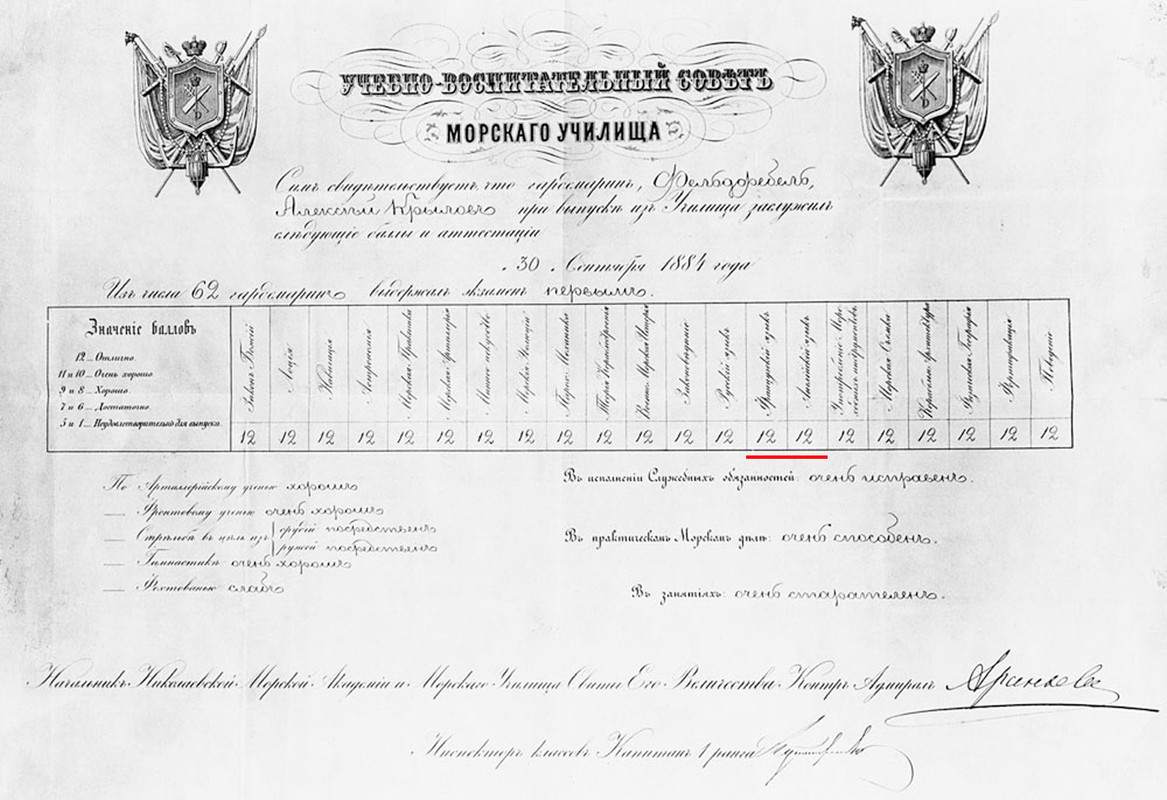 УЧЕБНО-ВОСПИТАТЕЛЬНЫЙ СОВѢТЪ
МОРСКАГО УЧИЛИЩА
Симъ свидѣтельствуетъ, что гардемаринъ, Фельдфебель,
Алексѣй Крыловъ при выпускѣ изъ Училища заслужилъ
слѣдующіе баллы и аттестаціи
30 Сентября 1884 года
Изъ числа 62 гардемаринъ выдержалъ экзаменъ первымъ.
Значеніе балловъ
12 ... Отлично.
11 и 10 ... Очень хорошо
9 и 8 ... Хорошо.
7 и 6 ... Достаточно.
5 и 1 ... Неудовлетворительно для выпуска.
Законъ Божій
Лоція
Навигація
Астрономія
Морская Практика
Морская Артиллерія
Минное искусство
Морская Эволюція
Паров. Механика
Теорія Кораблестроенія
Военно-Морская Исторія
Законовѣдѣніе
Русскій языкъ
Французскій языкъ
Англійскій языкъ
Морская Съемка
Корабельн. Архитектура
Физическая Географія
Фортификація
Поведеніе
12 12 12 12 12 12 12 12 12 12 12 12 12 12 12 12 12 12 12 12 12
По Артиллерійскому ученью хорошъ
— Фронтовому ученью очень хорошъ
— Стрѣльбѣ въ цѣль изъ орудій посредственъ
ружей посредственъ
— Гимнастикѣ очень хорошъ
— Фехтованью слабъ
Въ исполненіи Служебныхъ обязанностей: очень исправенъ.
Въ практическомъ Морскомъ дѣлѣ: очень способенъ.
Въ занятіяхъ: очень старателенъ.
Начальникъ Николаевской Морской Академіи и Морскаго Училища Свиты Его Величества Контръ Адмиралъ Арсеньевъ
Инспекторъ классовъ Капитанъ 1 ранга